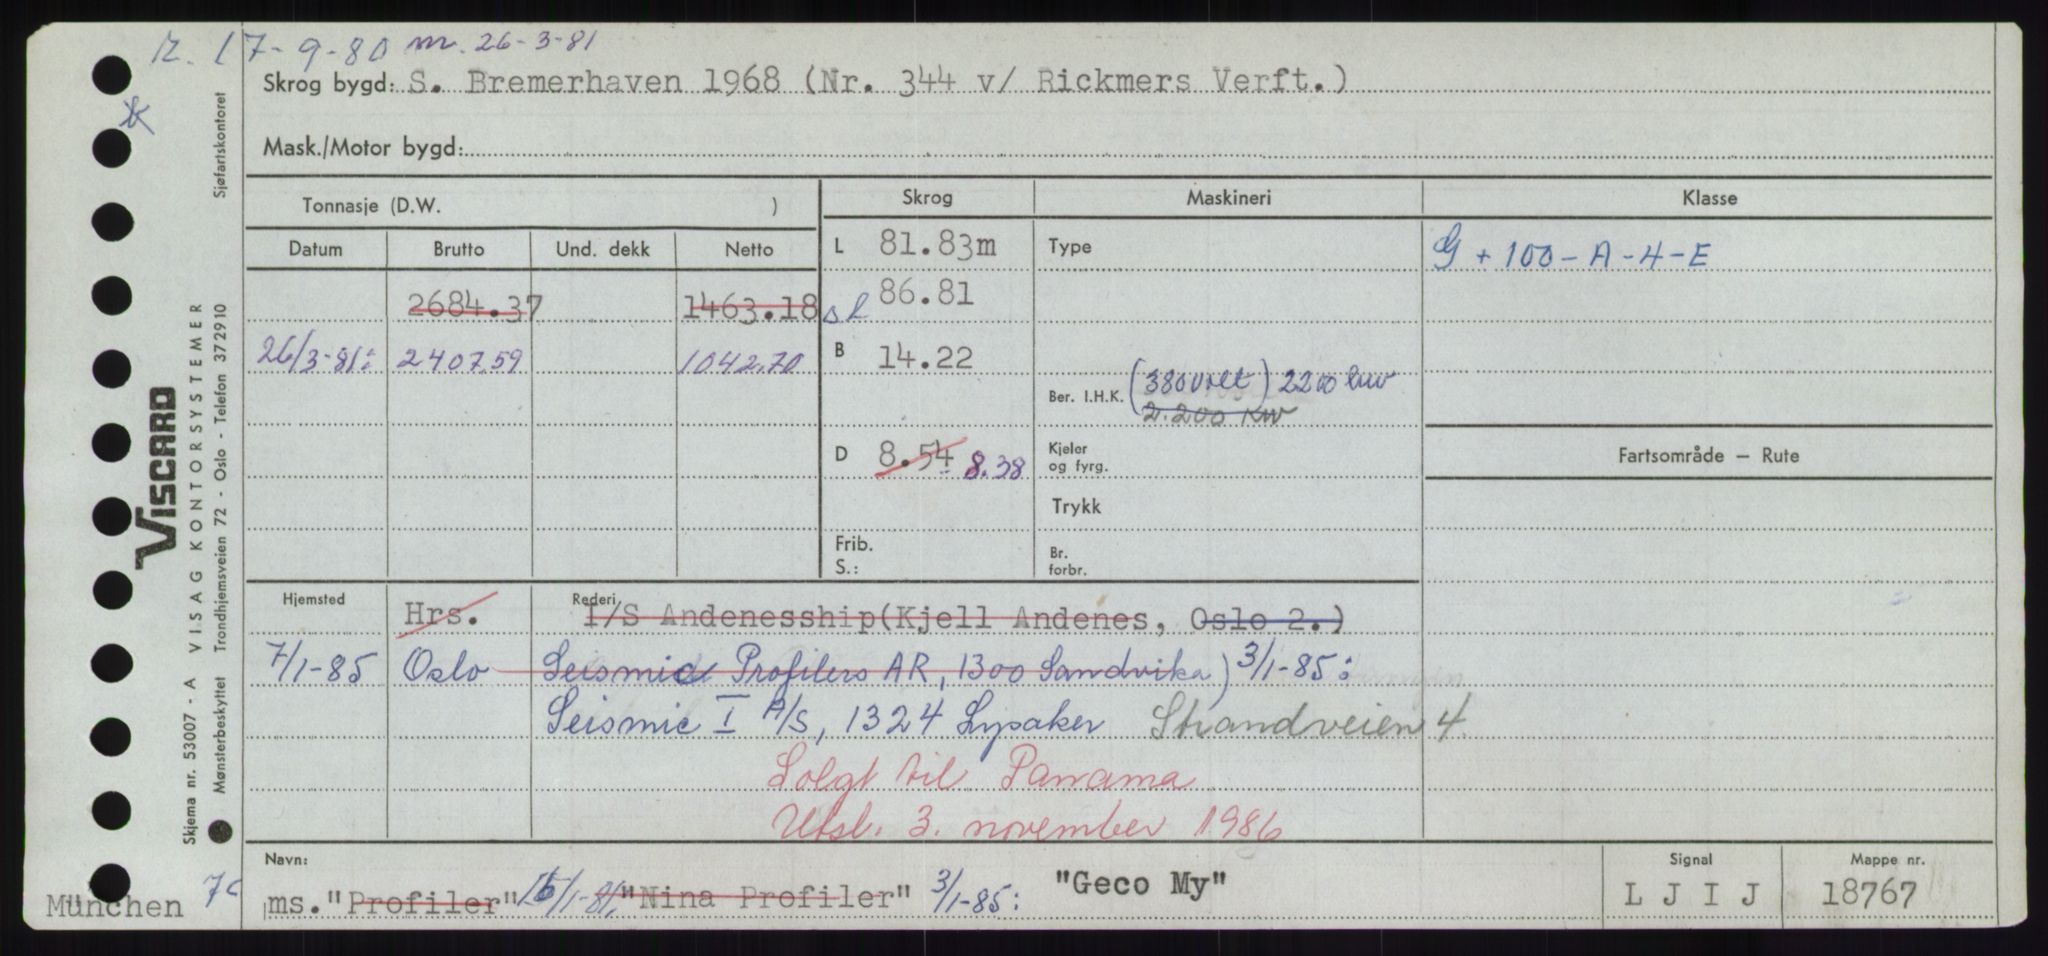 r. 17-9-80 m. 26-3-81
Skrog bygd: S. Bremerhaven 1968 (Nr. 344 v/ Rickmers Verft.)
Mask./Motor bygd:
Tonnasje (D.W. ) Skrog Maskineri Klasse
Datum Brutto Und. dekk Netto L 81.83m Type G + 100 - A - 4 - E
2684.37 1463.18 sl 86.81
26/3-81: 2407.59 1042.70 B 14.22
Ber. I.H.K. (380 volt) 2200 kw
2.200 KW
D 8.54 8.38 Kjeler og fyrg. Fartsområde — Rute
Trykk
Frib. S.: Br. forbr.
Hjemsted Hrs. Rederi I/S Andenesship(Kjell Andenes, Oslo 2.)
7/1-85 Oslo Seismic Profilers AR, 1300 Sandvika) 3/1-85:
Seismic I A/S, 1324 Lysaker Strandveien 4.
Solgt til Panama
Utsl. 3. november 1986
Navn: Signal Mappe nr.
ms. "Profiler" 15/1-81, "Nina Profiler" 3/1-85: "Geco My" L J I J 18767
München 7c
VISCARD
VISAG KONTORSYSTEMER
Trondhjemsveien 72 - Oslo - Telefon 372910
Skjema nr. 53007 - A
Mønsterbeskyttet
Sjøfartskontoret